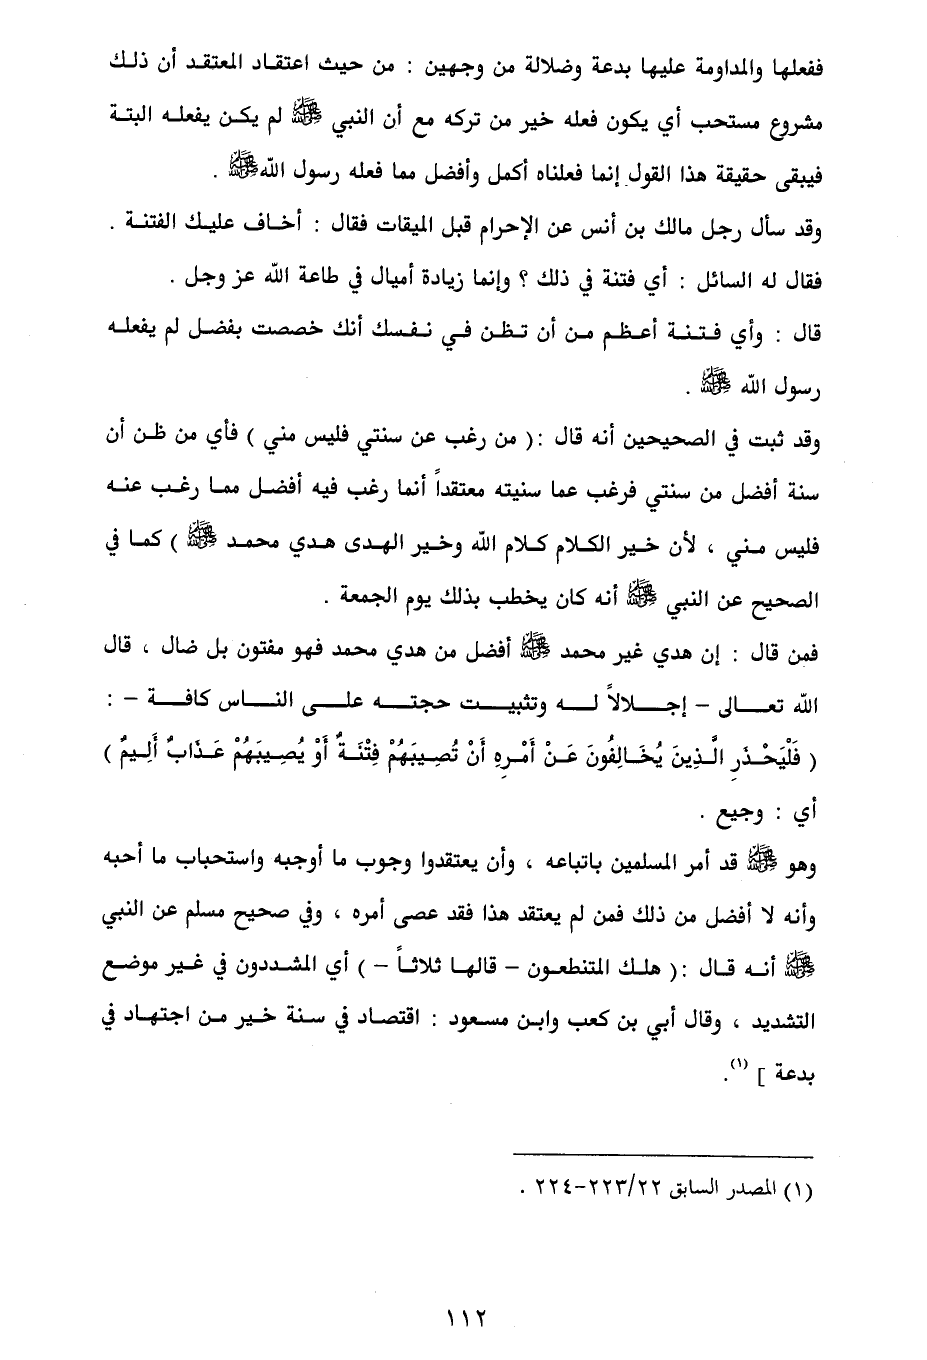 ففعلها والمداومة عليها بدعة وضلالة من وجهين : من حيث اعتقاد المعتقد أن ذلك
مشروع مستحب أي يكون فعله خير من تركه مع أن النبي ﷺ لم يكن يفعله البتة
فيبقى حقيقة هذا القول إنما فعلناه أكمل وأفضل مما فعله رسول الله ﷺ .
وقد سأل رجل مالك بن أنس عن الإحرام قبل الميقات فقال : أخاف عليك الفتنة .
فقال له السائل : أي فتنة في ذلك ؟ وإنما زيادة أميال في طاعة الله عز وجل .
قال : وأي فتنة أعظم من أن تظن في نفسك أنك خصصت بفضل لم يفعله
رسول الله ﷺ .
وقد ثبت في الصحيحين أنه قال :( من رغب عن سنتي فليس مني ) فأي من ظن أن
سنة أفضل من سنتي فرغب عما سنيته معتقداً أنما رغب فيه أفضل مما رغب عنه
فليس مني ، لأن خير الكلام كلام الله وخير الهدى هدي محمد ﷺ ) كما في
الصحيح عن النبي ﷺ أنه كان يخطب بذلك يوم الجمعة .
فمن قال : إن هدي غير محمد ﷺ أفضل من هدي محمد فهو مفتون بل ضال ، قال
الله تعالى – إجلالاً له وتثبيت حجته على الناس كافة – :
( فَلْيَحْذَرِ الَّذِينَ يُخَالِفُونَ عَنْ أَمْرِهِ أَنْ تُصِيبَهُمْ فِتْنَةٌ أَوْ يُصِيبَهُمْ عَذَابٌ أَلِيمٌ )
أي : وجيع .
وهو ﷺ قد أمر المسلمين باتباعه ، وأن يعتقدوا وجوب ما أوجبه واستحباب ما أحبه
وأنه لا أفضل من ذلك فمن لم يعتقد هذا فقد عصى أمره ، وفي صحيح مسلم عن النبي
ﷺ أنه قال :( هلك المتنطعون – قالها ثلاثاً – ) أي المشددون في غير موضع
التشديد ، وقال أبي بن كعب وابن مسعود : اقتصاد في سنة خير من اجتهاد في
بدعة ] (١).
(١) المصدر السابق ٢٢/٢٢٣-٢٢٤ .
١١٢